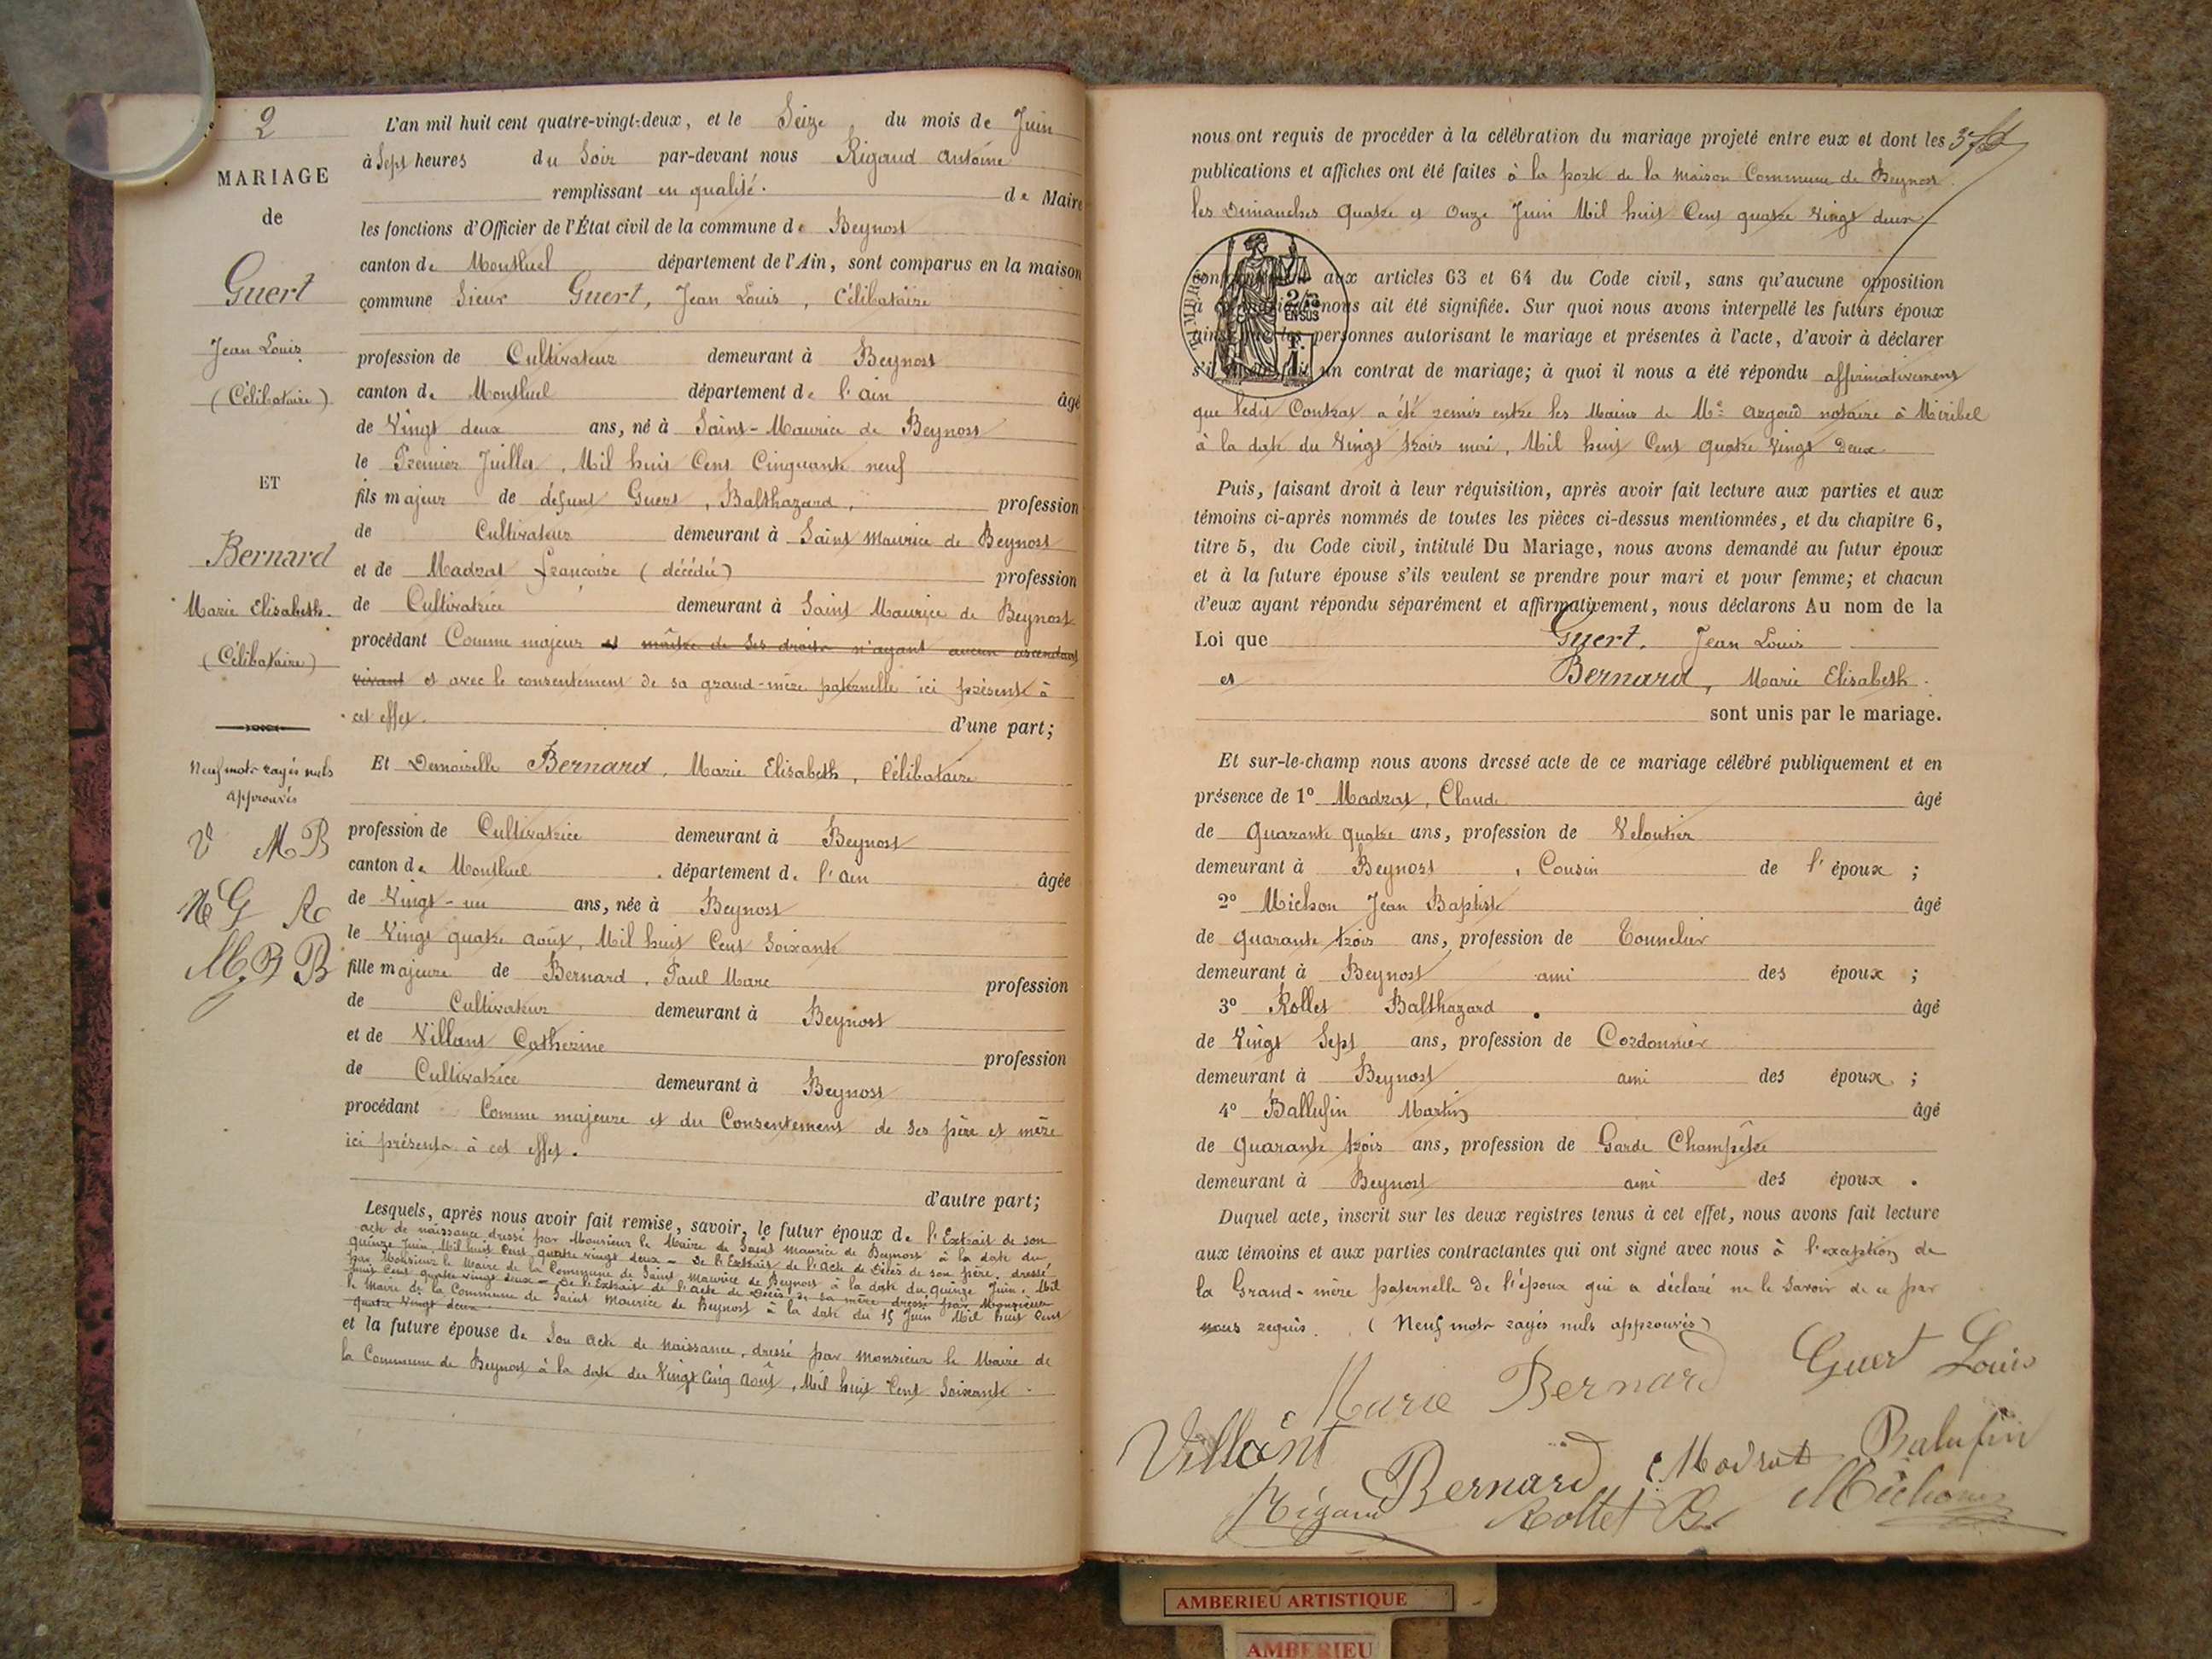 2
MARIAGE
de
Guert
Jean Louis
(Célibataire)
ET
Bernard
Marie Elisabeth
(Célibataire)
Neuf mots rayés nuls
approuvés
V MB
G R
MB B
L'an mil huit cent quatre-vingt-deux, et le Seize du mois de Juin
à Sept heures du Soir par-devant nous Rigaud Antoine
remplissant en qualité de Maire
les fonctions d'Officier de l'État civil de la commune de Beynost
canton de Montluel département de l'Ain, sont comparus en la maison
commune Sieur Guert, Jean Louis, Célibataire
profession de Cultivateur demeurant à Beynost
canton de Montluel département de l'ain âgé
de Vingt deux ans, né à Saint-Maurice de Beynost
le Premier Juillet, Mil huit Cent Cinquante neuf
fils majeur de défunt Guert, Balthazard, profession
de Cultivateur demeurant à Saint Maurice de Beynost
et de Madrat Françoise (décédée) profession
de Cultivatrice demeurant à Saint Maurice de Beynost
procédant Comme majeur et maître de ses droits n'ayant aucun ascendant
vivant et avec le consentement de sa grand-mère paternelle ici présente à
cet effet. d'une part;
Et Demoiselle Bernard, Marie Elisabeth, Célibataire
profession de Cultivatrice demeurant à Beynost
canton de Montluel département de l'ain âgée
de Vingt-un ans, née à Beynost
le Vingt quatre août, Mil huit Cent Soixante
fille majeure de Bernard, Paul Marc profession
de Cultivateur demeurant à Beynost
et de Villant Catherine profession
de Cultivatrice demeurant à Beynost
procédant Comme majeure et du Consentement de ses père et mère
ici présents à cet effet.
d'autre part;
Lesquels, après nous avoir fait remise, savoir, le futur époux de l'Extrait de son
acte de naissance dressé par Monsieur le Maire de Saint Maurice de Beynost à la date du
quinze Juin, Mil huit Cent quatre vingt deux - De l'Extrait de l'acte de Décès de son père, dressé
par Monsieur le Maire de la Commune de Saint Maurice de Beynost à la date du quinze Juin, Mil
huit Cent quatre vingt deux - De l'Extrait de l'acte de Décès de sa mère dressé par Monsieur
le Maire de la Commune de Saint Maurice de Beynost à la date du 15 Juin Mil huit Cent
quatre Vingt deux
et la future épouse de Son acte de naissance, dressé par Monsieur le Maire de
la Commune de Beynost à la date du Vingt Cinq Août, Mil huit Cent Soixante
nous ont requis de procéder à la célébration du mariage projeté entre eux et dont les
publications et affiches ont été faites à la porte de la Maison Commune de Beynost
les Dimanches Quatre et Onze Juin Mil huit Cent quatre Vingt deux
aux articles 63 et 64 du Code civil, sans qu'aucune opposition
nous ait été signifiée. Sur quoi nous avons interpellé les futurs époux
personnes autorisant le mariage et présentes à l'acte, d'avoir à déclarer
un contrat de mariage; à quoi il nous a été répondu affirmativement
que ledit Contrat a été remis entre les Mains de Me Argoud notaire à Miribel
à la date du Vingt trois mai, Mil huit Cent quatre Vingt deux
2/10
EN SUS
Puis, faisant droit à leur réquisition, après avoir fait lecture aux parties et aux
témoins ci-après nommés de toutes les pièces ci-dessus mentionnées, et du chapitre 6,
titre 5, du Code civil, intitulé Du Mariage, nous avons demandé au futur époux
et à la future épouse s'ils veulent se prendre pour mari et pour femme; et chacun
d'eux ayant répondu séparément et affirmativement, nous déclarons Au nom de la
Loi que Guert, Jean Louis
et Bernard, Marie Elisabeth
sont unis par le mariage.
Et sur-le-champ nous avons dressé acte de ce mariage célébré publiquement et en
présence de 1° Madrat, Claude âgé
de quarante quatre ans, profession de Veloutier
demeurant à Beynost, Cousin de l'époux;
2° Michon Jean Baptiste âgé
de quarante trois ans, profession de Tonnelier
demeurant à Beynost ami des époux;
3° Rollet Balthazard âgé
de Vingt Sept ans, profession de Cordonnier
demeurant à Beynost ami des époux;
4° Ballufin Martin âgé
de quarante trois ans, profession de Garde Champêtre
demeurant à Beynost ami des époux.
Duquel acte, inscrit sur les deux registres tenus à cet effet, nous avons fait lecture
aux témoins et aux parties contractantes qui ont signé avec nous à l'exception de
la Grand-mère paternelle de l'époux qui a déclaré ne le savoir de ce par
nous requis. (Neuf mots rayés nuls approuvés)
Marie Bernard Guert Louis
Villant Bernard Madrat Balufin
Rigaud Rollet B. Michon
AMBERIEU ARTISTIQUE
AMBERIEU